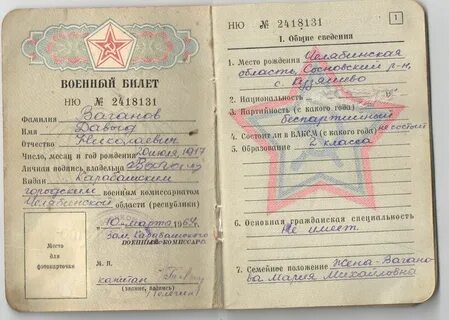 ВОЕННЫЙ БИЛЕТ
НЮ № 2418131
Фамилия Ваганов
Имя Давыд
Отчество Николаевич
Число, месяц и год рождения 20 июля 1917
Личная подпись владельца
Выдан Карабашским
городским военным комиссариатом
Челябинской области (республики)
10 марта 1964
зам. Карабашского
военный комиссар
М. П.
капитан
(звание, подпись)
Место
для
фотокарточки
НЮ № 2418131
1
I. Общие сведения
1. Место рождения Челябинская
область, Сосновский р-н,
с.
2. Национальность
3. Партийность (с какого года)
беспартийный
4. Состоит ли в ВЛКСМ (с какого года) не состоит
5. Образование 2 класса
6. Основная гражданская специальность
Не имеет
7. Семейное положение жена-Вагано-
ва Мария Михайловна